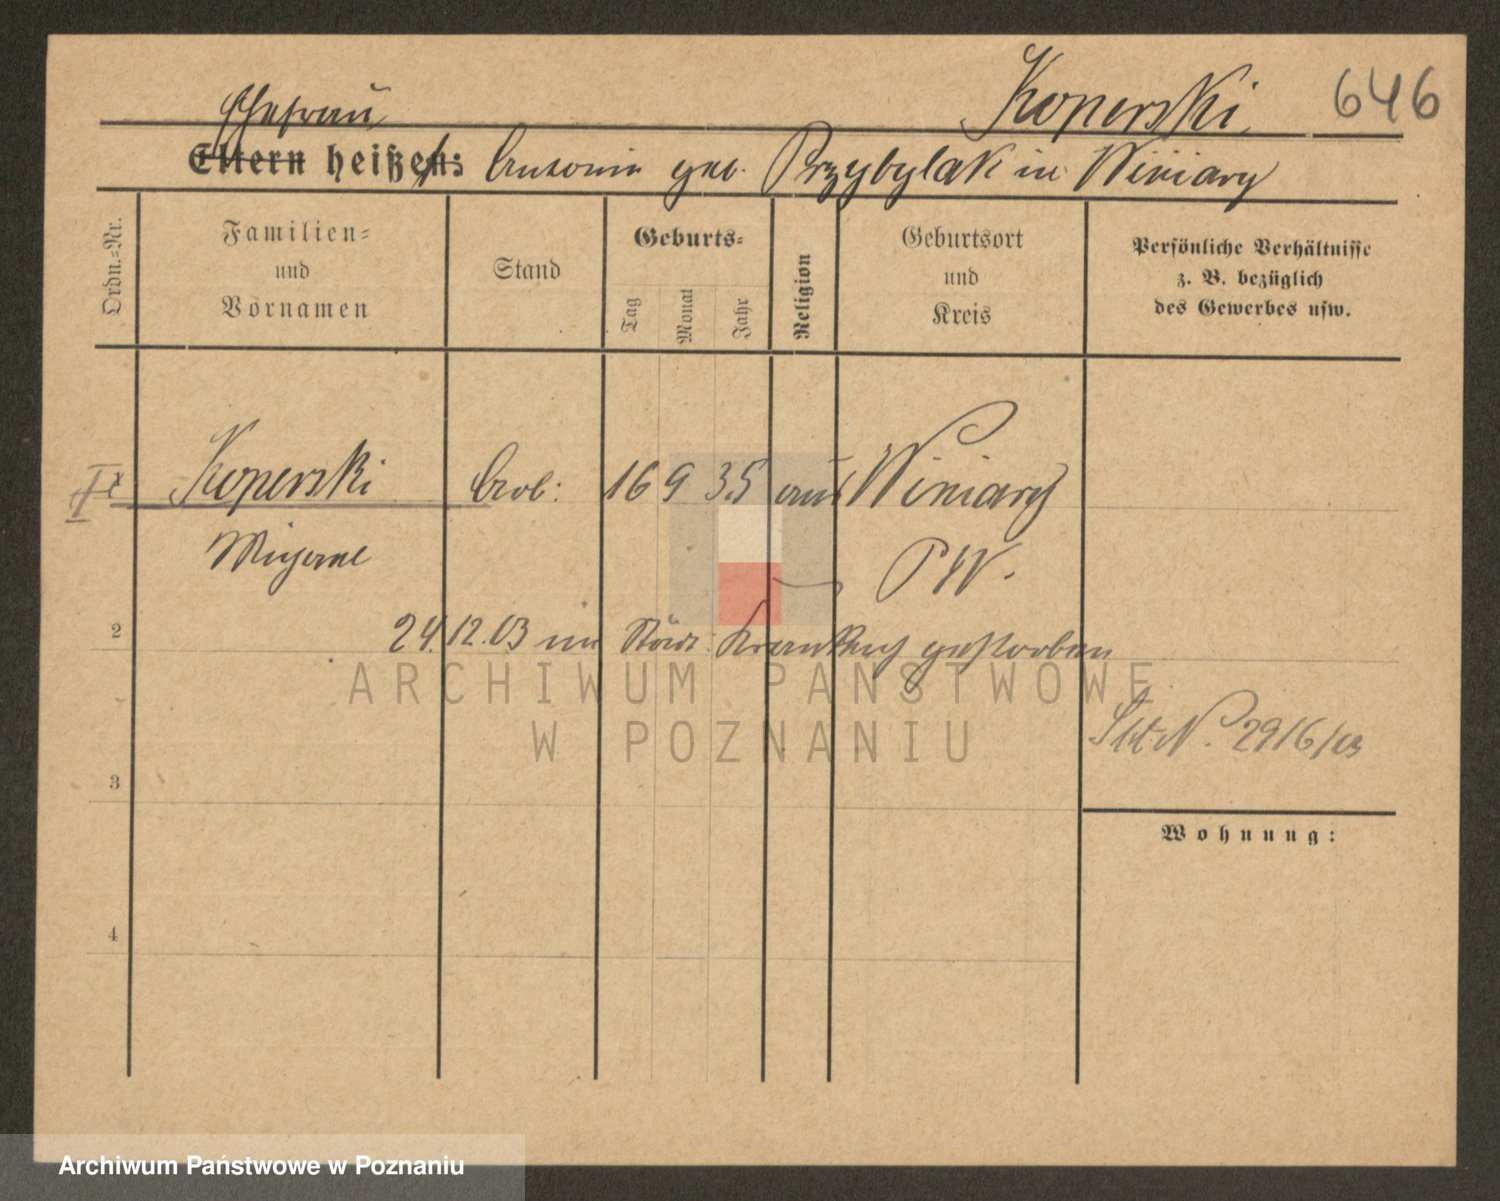 Koperski 646
Ehefrau
Eltern heißen: Antonin geb. Przybylak in Winiary
Ordn.-Nr.
Familien-
und
Vornamen
Stand
Geburts-
Tag
Monat
Jahr
Religion
Geburtsort
und
Kreis
Persönliche Verhältnisse
z. B. bezüglich
des Gewerbes usw.
Koperski Arb: 16 9 35 aus Winiary
P/W.
2
24.12.03 im Städt. Krankhs gestorben
ARCHIWUM PAŃSTWOWE
W POZNANIU
2916/03
3
Wohnung:
4
Archiwum Państwowe w Poznaniu